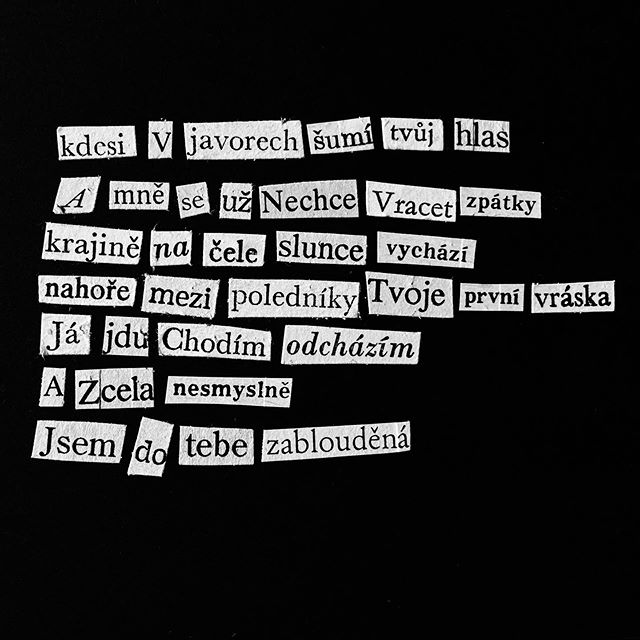 kdesi V javorech šumí tvůj hlas
A mně se už Nechce Vracet zpátky
krajině na čele slunce vychází
nahoře mezi poledníky Tvoje první vráska
Já jdu Chodím odcházím
A Zcela nesmyslně
Jsem do tebe zablouděná